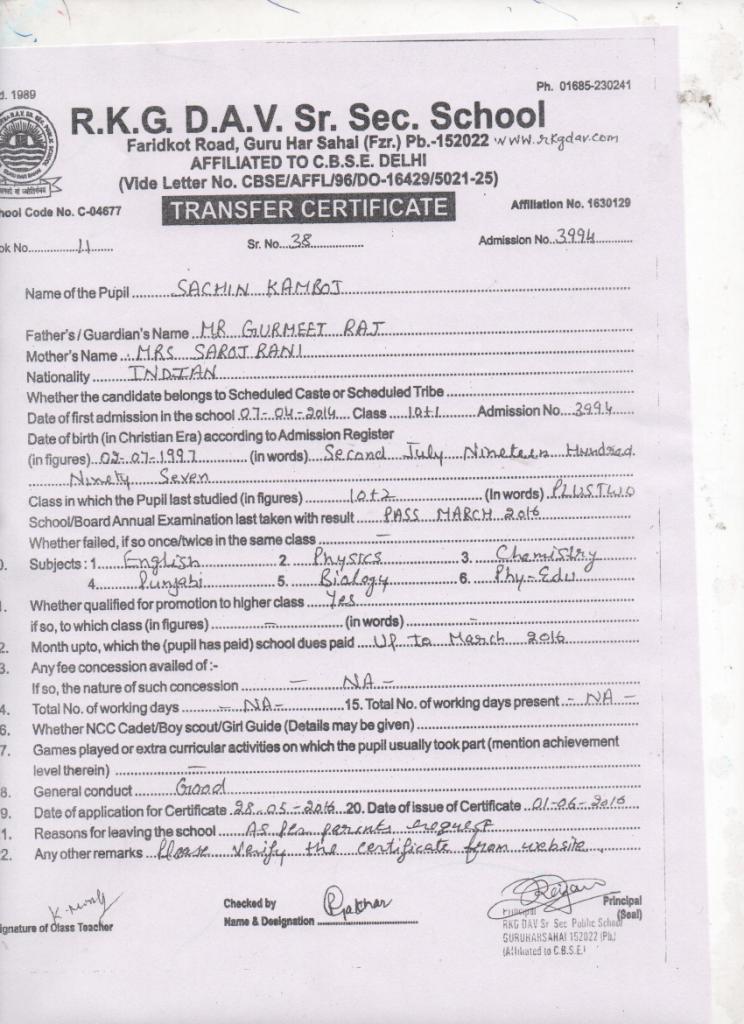 d. 1989
Ph. 01685-230241
R.K.G. D.A.V. Sr. Sec. School
Faridkot Road, Guru Har Sahai (Fzr.) Pb.-152022 www.rkgdav.com
AFFILIATED TO C.B.S.E. DELHI
(Vide Letter No. CBSE/AFFL/96/DO-16429/5021-25)
hool Code No. C-04677 TRANSFER CERTIFICATE Affiliation No. 1630129
ok No. 11 Sr. No. 38 Admission No. 3994
Name of the Pupil SACHIN KAMBOJ
Father's / Guardian's Name MR GURMEET RAJ
Mother's Name MRS SAROJ RANI
Nationality INDIAN
Whether the candidate belongs to Scheduled Caste or Scheduled Tribe
Date of first admission in the school 07-04-2014 Class 10+1 Admission No. 3994
Date of birth (in Christian Era) according to Admission Register
(in figures) 02-07-1997 (in words) Second July Nineteen Hundred
Ninety Seven
Class in which the Pupil last studied (in figures) 10+2 (In words) PLUS TWO
School/Board Annual Examination last taken with result PASS MARCH 2016
Whether failed, if so once/twice in the same class —
0. Subjects : 1. English 2. Physics 3. Chemistry
4. Punjabi 5. Biology 6. Phy-Edu
1. Whether qualified for promotion to higher class Yes
if so, to which class (in figures) — (in words) —
2. Month upto, which the (pupil has paid) school dues paid Up to March 2016
3. Any fee concession availed of :-
If so, the nature of such concession — NA —
4. Total No. of working days — NA — 15. Total No. of working days present - NA -
6. Whether NCC Cadet/Boy scout/Girl Guide (Details may be given)
7. Games played or extra curricular activities on which the pupil usually took part (mention achievement
level therein) —
8. General conduct Good
9. Date of application for Certificate 28-05-2016 20. Date of issue of Certificate 01-06-2016
1. Reasons for leaving the school As per parents request
2. Any other remarks Please verify the certificate from website
ignature of Class Teacher
Checked by
Name & Designation
Principal
(Seal)
Principal
RKG DAV Sr Sec Public School
GURUHARSAHAI 152022 (Pb.)
(Affiliated to C.B.S.E.)